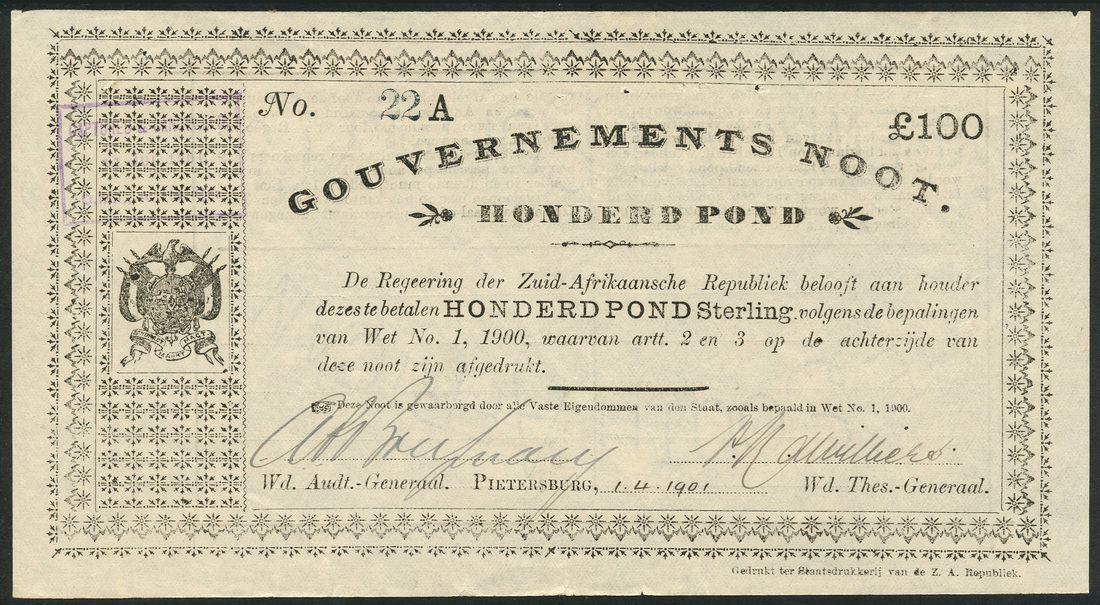 No. 22 A
£100
GOUVERNEMENTS NOOT.
HONDERD POND
De Regeering der Zuid-Afrikaansche Republiek belooft aan houder
dezes te betalen HONDERD POND Sterling, volgens de bepalingen
van Wet No. 1, 1900, waarvan artt. 2 en 3 op de achterzijde van
deze noot zijn afgedrukt.
Deze Noot is gewaarborgd door alle Vaste Eigendommen van den Staat, zooals bepaald in Wet No. 1, 1900.
Wd. Audt.-Generaal. PIETERSBURG, 1.4.1901 Wd. Thes.-Generaal.
Gedrukt ter Staatsdrukkerij van de Z. A. Republiek.